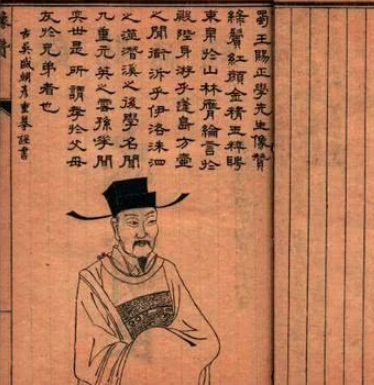 蜀王賜正學先生像贊
綠鬢紅顏金精玉粹聘
束帛於山林膺綸言於
殿陛身游乎蓬島方壺
之間衜泝乎伊洛洙泗
之潛溪之後學名聞
九重元英之雲孫學聞
奕世是所謂孝於父母
友於兄弟者也
古吳綱彥重摹謹書
像贊